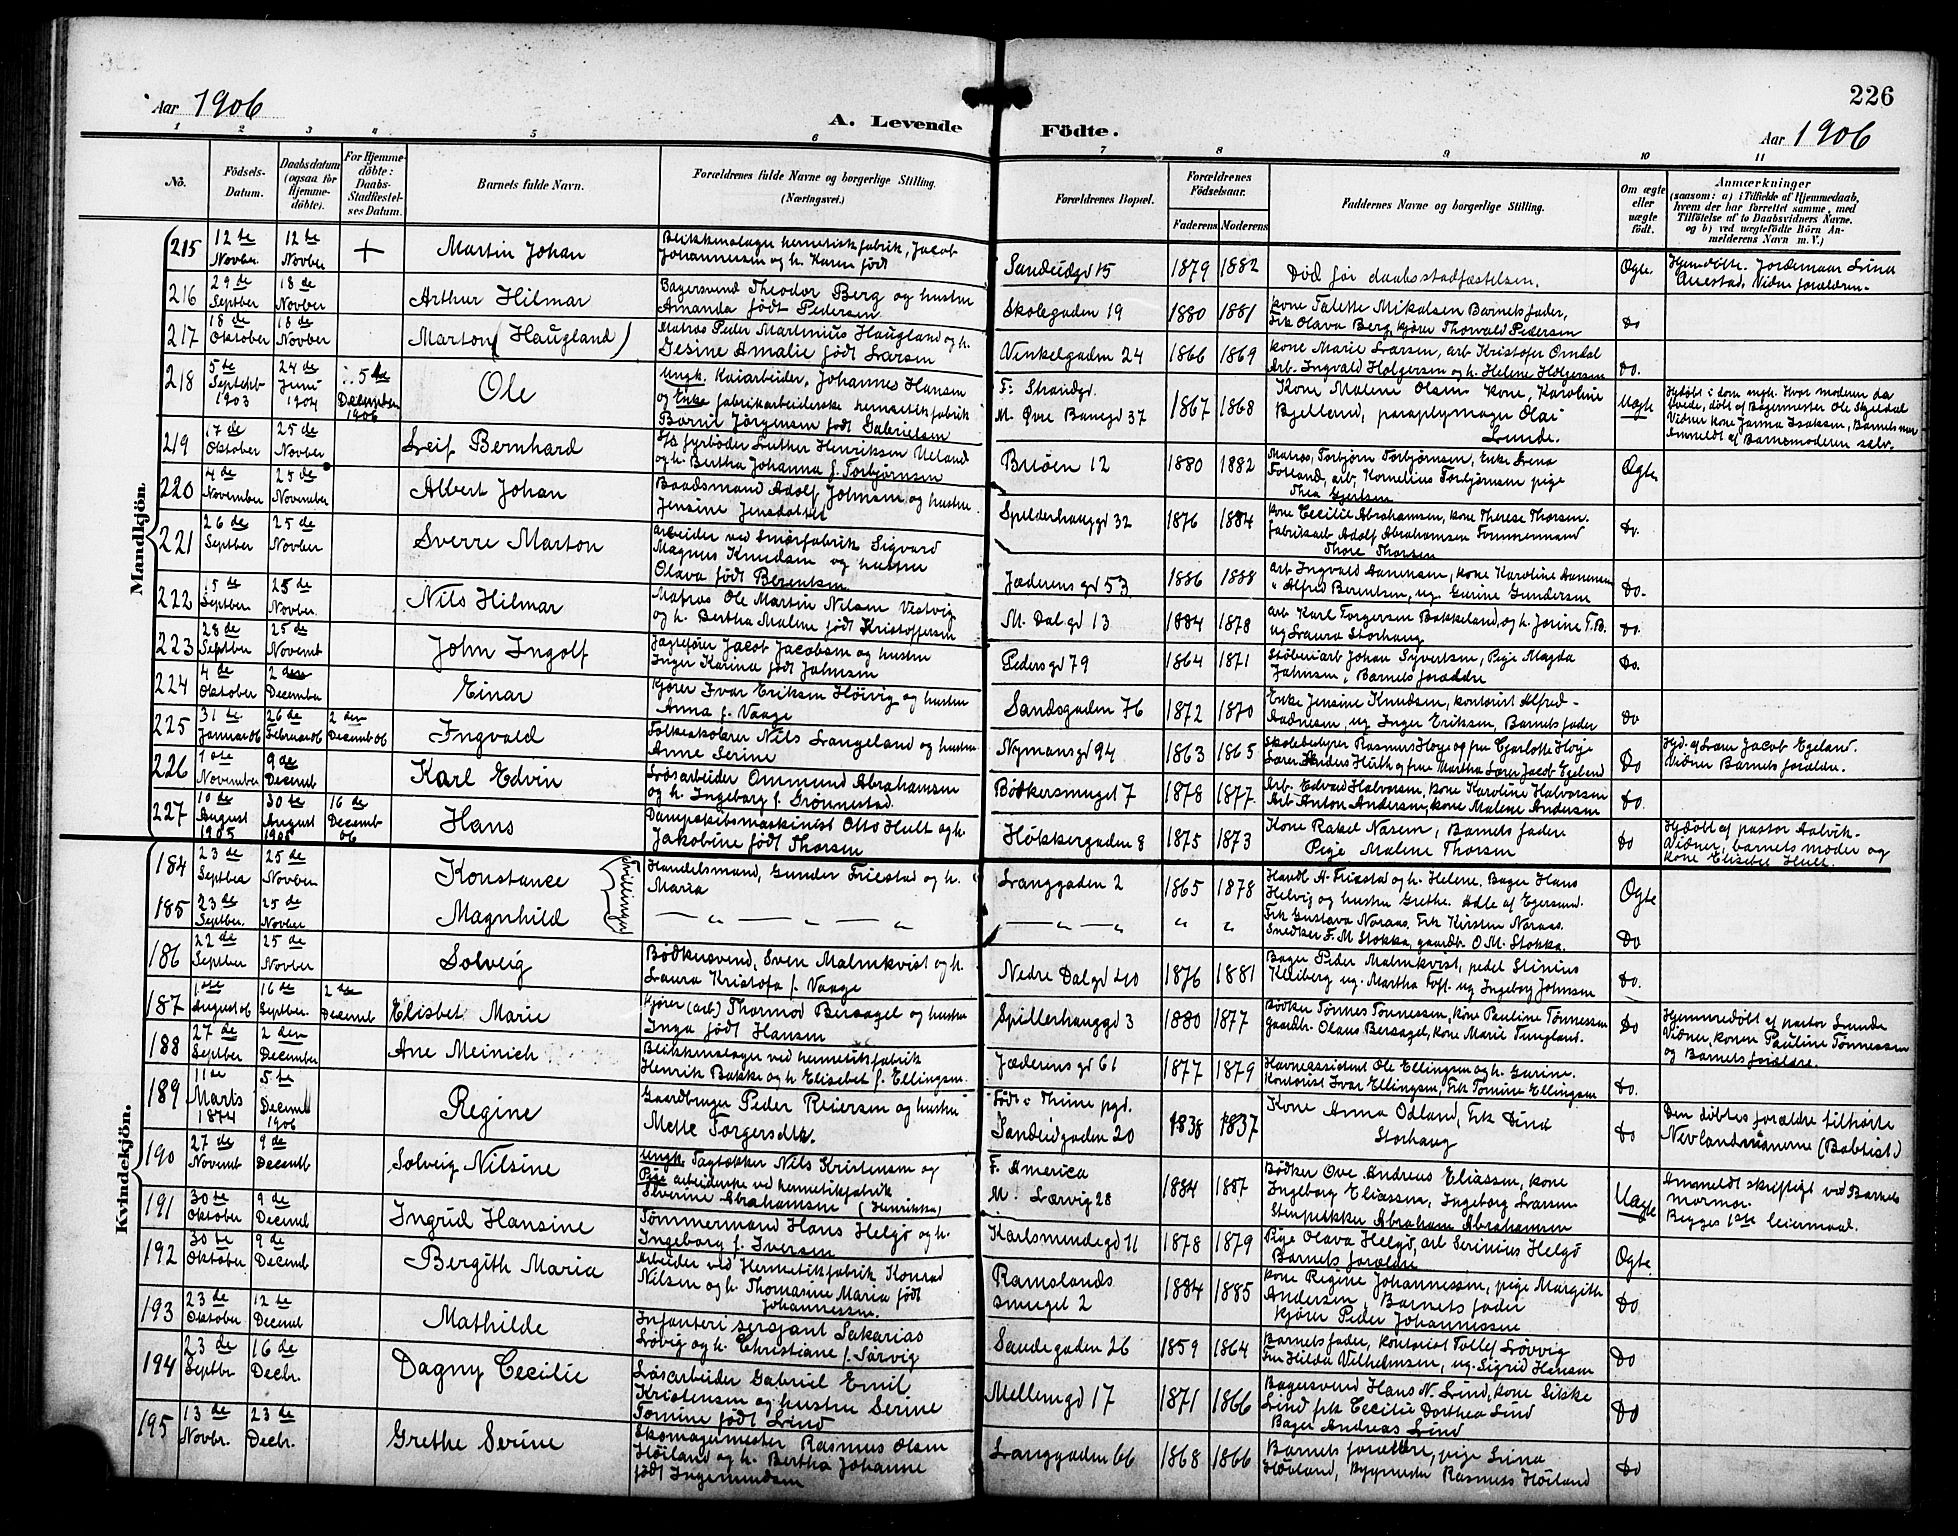 Aar 1906
A. Levende Födte.
226
Aar 1906
1 2 3 4 5 6 7 8 9 10 11
No.
Födsels-Datum.
Daabsdatum (ogsaa for Hjemmedöbte).
For Hjemmedöbte: Daabs-Stadfæstelses Datum.
Barnets fulde Navn.
Forældrenes fulde Navne og borgerlige Stilling.
(Næringsvei.)
Forældrenes Bopæl.
Forældrenes Födselsaar.
Faderens Moderens
Faddernes Navne og borgerlige Stilling.
Om ægte eller uægte födt.
Anmærkninger
(saasom: a) i Tilfælde af Hjemmedaab, hvem der har forrettet samme, med Tilföielse af to Daabsvidners Navne, og b) ved uægtefödte Börn Anmelderens Navn m. V.)
Mandkjön.
215 12te Novber. 12te Novber + Martin Johan
Blikkenslager hermetikfabrik, Jacob
Johannessen og h. Karen født
Sandeidgd 15 1879 1882 Død før daabsstadfæstelsen. Ægte. Hjemdøbte. Jordemoer Lina
Auestad. Vidne forældren.
216 29de Septber 18de Novber Arthur Hilmar
Bagersvend Theodor Berg og hustru
Amanda født Pedersen
Skolegaden 19 1880 1881 Kone Talette Mikalsen Barnets fader,
Frk Olava Berg, kjører Thorvald Pedersen Do
217 18de Oktober 18de Novber Marton (Haugland)
Matros Peder Martinius Haugland og h.
Gesine Amalie født Larsen
Vinkelgaden 24 1866 1869 Kone Marie Larsen, arb Kristofer Omdal
Arb. Ingvald Holgersen og h. Helene Holgersen Do.
218 5te Septbr 1903 24de Juni 1904 5te December 1906 Ole
Ungk. Kaiarbeider, Johannes Hansen
og Enke fabrikarbeiderske hermetikfabrik
Jörgensen født Gabrielsen
F: Strandgd.
M. Øvre Banegd 37 1867 1868 Kone Malene Olsen Kone, Karoline
Bjelland, paraplymager Olai
Lunde. Uægte
Vidner kone Janna Isaksen, Barnets mor
Anmeldt af Barnemoderen selv.
219 17de Oktober 25de Novber Leif Bernhard
fyrbøder Luther Henriksen Ueland
og h. Bertha Johanna f. Torbjørnsen
Brøen 12 1880 1882 Matros, Torbjørn Torbjørnsen, Enke Lena
Fotland, arb, Kornelius Torbjørnsen pige
Thea Gjertsen Ægte
220 4de November 25de November Albert Johan
Baadsmand Adolf Johnsen og hustru
Jensine Jensdatter
Spilderhauggd 32 1876 1884 Kone Cecilie Abrahamsen, kone Therese Thorsen.
Fabriksarb Adolf Abrahamsen Tømmermand
Thore Thorsen Do.
221 26de Septber 25de Novber. Sverre Marton
arbeider ved Smørfabrik Sigvard
Magnus Knudsen og hustru
Olava født Berentsen
Jæderens gd 53 1886 1888 arb Ingvald Aanensen, kone Karoline Aanensen
" Alfred Berentsen, ug. Gurine Gundersen Do.
222 15de Septber 25de Novber. Nils Hilmar
Matros Ole Martin Nilsen Vistvig
og h. Bertha Malene født Kristoffersen
N. Dal gd 13 1884 1878 arb Karl Torgersen Bakkeland, og h. Josine T.B.
ug Laura Storhaug Do.
223 28de Septber 25de Novemb John Ingolf
Jagtefører Jacob Jacobsen og hustru
Inger Karina født Johnsen
Pedersgd 79 1864 1871 Støberiarb Johan Syvertsen, Pige Magda
Johnsen, Barnets forældre Do.
224 4de Oktober 2den December Einar
Kjører Ivar Eriksen Høivig og hustru
Anna f. Vaage
Sandsgaden 76 1872 1870 Enke Jensine Knudsen, kontorist Alfred
Aadnesen, ug. Inger Eriksen, Barnets fader Do
225 31te Januar 06 26de Februar 06 2den Decemb 06 Ingvald
Folkeskolelærer Nils Langeland og hustru
Anne Serine
Nymansgd 94 1863 1865 Skolebestyrer Rasmus Høye og fru Charlotte Høye
Lærer Anders Huth og frue Martha Lærer Jacob Egeland Do Hjd. af Lærer Jacob Egeland.
Vidner Barnets forældre.
226 1ste November 9de Decemb Karl Edvin
Løsarbeider Ommund Abrahamsen
og h. Ingeborg f. Grønnestad.
Bødkersmuget 7 1878 1877 Arb. Edvard Halvorsen, kone Karoline Halvorsen
Arb Anton Andersen, kone Malene Andersen Do.
227 10de August 1905 30te August 1905 16de Decemb 06 Hans
Dampskibsmaskinist Otto Hult og h.
Jakobine født Thorsen
Høkkergaden 8 1875 1873 Kone Rakel Næsen, Barnets fader
Pige Malene Thorsen Do Hjdøbt af pastor Aalvik.
Vidner, barnets moder og
kone Elisebet Hult.
Kvindekjön.
184 23de Septber 25de Novber Konstance Tvillinger
Handelsmand, Gunder Friestad og h.
Maria
Langgaden 2 1865 1878 Handl A. Friestad og h. Helene. Bager Hans
Helvig og hustru Grethe. Alle af Egersund. Ægte
185 23de Septber. 25de Novber Magnhild
— " — " — "
— " — " " " Frk Gustava Noraas. Frk Kirsten Noraas.
Snedker F. M Stokka, gaardb. O. M. Stokka. Do
186 22de Septber 25de Novber Solveig
Bødkersvend, Sven Malmkvist og h.
Laura Kristofa f. Vaage
Nedre Dalgd 40 1876 1881 Bager Peder Malmkvist, pedel Stinius
Kleiberg ug. Martha Toft. ug Ingeborg Johnsen Do.
187 1ste August 06 16de Septber. 2den Decemb Elisbet Marie
Kjører (arb) Thormod Bersagel og hustru
Inga født Hansen
Spillerhauggd 3 1880 1877 Bødker Tønnes Tønnessen, kone Pauline Tønnessen
Gaardbr. Olaus Bersagel, kone Marie Tungland. Do Hjemmedøbt af pastor Lunde
Vidner, konen Pauline Tønnessen
og Barnets forældre.
188 27de Septber 2den December Ane Meinich
Blikkenslager ved hermetikfabrik
Henrik Bakke og h. Elisebet f. Ellingsen.
Jæderens gd 61 1877 1879 Havneassistent Ole Ellingsen og h. Gurine.
Kontorist Ivar Ellingsen, Frk Tomine Ellingsen Do.
189 11te Marts 1874 5te Decemb 1906 Regine
Gaardbruger Peder Reiersen og hustru
Mette Torgersdtr.
Født i Thime pgd.
Sandeidgaden 20 1838 1837 Kone Anna Odland, Frk Dina
Storhaug Do Den døbtes forældre tilhørte
Nevlandsvænerne (Babtist)
190 27de Novemb 9de Decemb Solveig Nilsine
Ungk. Tagtækker Nils Kristensen og
Pige arbeiderske ved hermetikfabrik
Severine Abrahamsen (Henrikka)
F. America
M. Lervig 28 1884 1887 Bødker Ove Andreas Eliassen, kone
Ingeborg Eliassen, Ingeborg Larsen
Stenpikker Abraham Abrahamsen Uægte Anmeldt skriftligt ved Barnets
mormor.
Begges 1ste leiermaal.
191 30te Oktober 9de Decemb Ingrid Hansine
Tømmermand Hans Helgø og h.
Ingeborg f. Iversen
Karlsmindegd 11 1878 1879 Pige Olava Helgø, arb Serinius Helgø
Barnets forældre Ægte
192 30te Oktober 9de Decemb Bergith Maria
Arbeider ved Hermetikfabrik Konrad
Nilsen og h. Thomasine Maria født
Johannessen.
Ramslands
smuget 2 1884 1885 Kone Regine Johannessen, pige Margith
Andersen, Barnets fader
kjører Peder Johannessen Do
193 23de Oktober 12te Decemb Mathilde
Infanteri sersjant Sakarias
Løvig og h. Christiane f. Sørvig
Sandegaden 26 1859 1864 Barnets fader, kontorist Tollef Løvvig
Fru Hilda Vilhelmsen, ug. Sigrid Hansen Do
194 23de Septbr 16de Decbr. Dagny Cecilie
Løsarbeider Gabriel Emil
Kristensen og hustru Serine
Tomine født Lind
Mellemgd 17 1871 1866 Bagersvend Hans N. Lind, kone Sikke
Lind frk Cecilie Dorthea Lind
Bager Andreas Lind Do
195 13de Novbr. 23de Decbr. Grethe Serine
Skomagermester Rasmus Olsen
Höiland og h. Bertha Johanne
født Ingemundsen
Langgaden 66 1868 1866 Barnets forældre, pige Lina
Høiland, Bygmester Rasmus Høiland Do